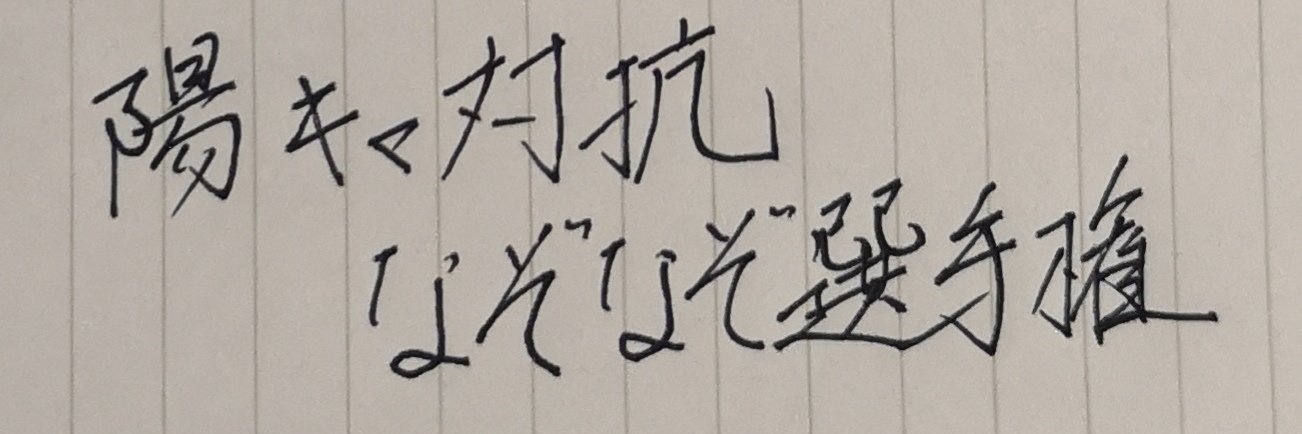 陽キャ対抗
なぞなぞ選手権